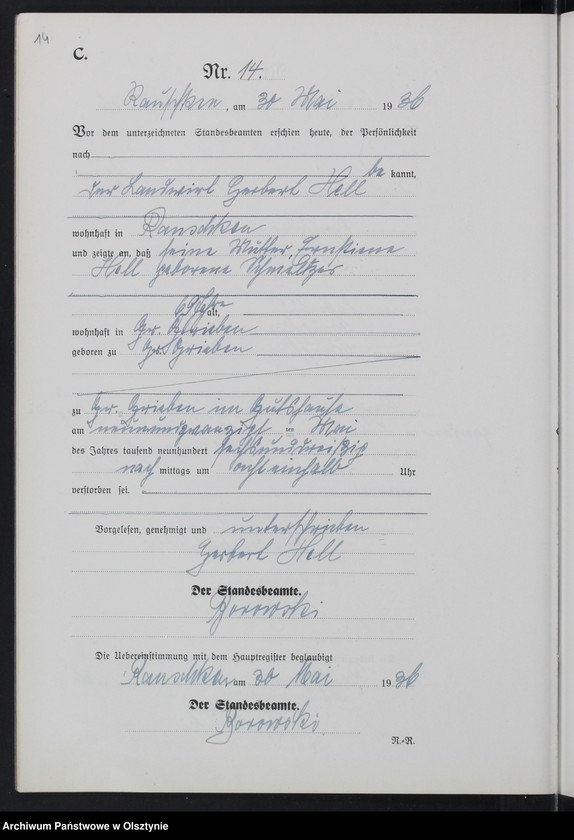 14
C.
Nr. 14.
Rauschken, am 30 Mai 1936
Vor dem unterzeichneten Standesbeamten erschien heute, der Persönlichkeit
nach
be kannt,
der Landwirt Herbert Hell
wohnhaft in Rauschken
und zeigte an, daß seine Mutter, Ernstiene
Hell geborene Schmeltzer
Jahre alt,
wohnhaft in Gr. Grieben
geboren zu Gr. Grieben
zu Gr. Grieben im Gutshause
am neunundzwanzigst ten Mai
des Jahres tausend neunhundert sechsunddreißig
nach mittags um acht einhalb Uhr
verstorben sei.
Vorgelesen, genehmigt und unterschrieben
Herbert Hell
Der Standesbeamte.
Borowski
Die Uebereinstimmung mit dem Hauptregister beglaubigt
Rauschken am 30 Mai 1936
Der Standesbeamte.
Borowski.
N.-R.
Archiwum Państwowe w Olsztynie